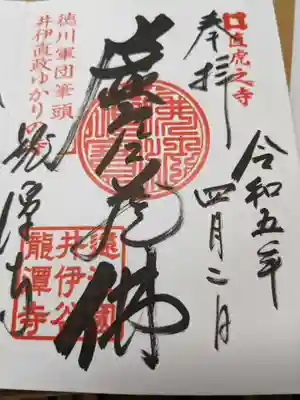 直虎之寺
奉拝
令和五年
四月二日
虚空蔵佛
徳川軍団筆頭
井伊直政ゆかりの寺
龍潭寺
遠江國
井伊谷
龍潭寺